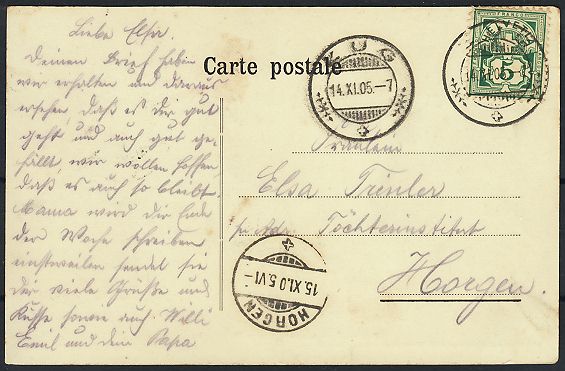 Liebe Elsa.
Deinen Brief haben
wir erhalten und daraus
ersehen, daß es dir gut
geht und auch gut ge-
fällt, wir wollen hoffen
daß es auch so bleibt.
Mama wird dir Ende
der Woche schreiben
einstweilen sendet sie
dir viele Grüße und
Küsse sowie auch Willi
Emil und dein Papa
Carte postale
ZUG
14.XI.05.-7
FRANCO
5
14.XI.05.
Fräulein
Elsa Trinler
pr. Adr. Töchterinstitut
Horgen.
15.XI.05.VI-
HORGEN